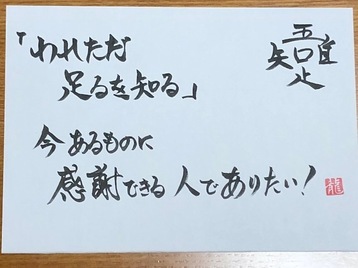 「われただ
足るを知る」
吾唯足知
今あるものに
感謝できる人でありたい！